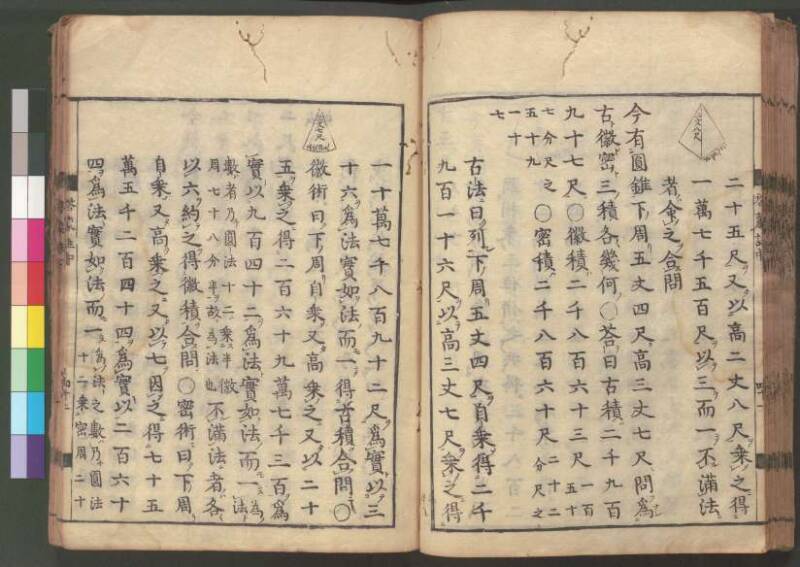 二十五尺又以高二丈八尺乘之得
一萬七千五百尺以三而一不滿法
者命之合問
今有圓錐下周五丈四尺高三丈七尺問爲
古徽密三積各幾何○荅曰古積二千九百
九十七尺○徽積二千八百六十三尺五十一百
七分尺之○密積二千八百六十尺二十二分尺之
五十九
一十
七
古法曰列下周五丈四尺自乘得二千
九百一十六尺以高三丈七尺乘之得
一十萬七千八百九十二尺爲實以三
十六爲法實如法而一得古積合問○
徽術曰下周自乘又高乘之又以二十
五乘之得二百六十九萬七千三百爲
實以九百四十二爲法實如法而一爲法
數者乃圓法十二乘半徽
周七十八分半故爲法也不滿法者各
以六約之得徽積合問○密術曰下周
自乘又高乘之又以七因之得七十五
萬五千二百四十四爲實以二百六十
四爲法實如法而一爲法之數乃圓法
十二乘密周二十